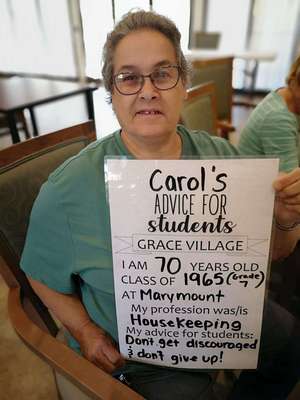 Carol's
ADVICE FOR
students
GRACE VILLAGE
I AM 70 YEARS OLD
CLASS OF 1965 (Grade 7)
AT Marymount
My profession was/is
HouseKeeping
My advice for students:
Don't get discouraged
& don't give up!